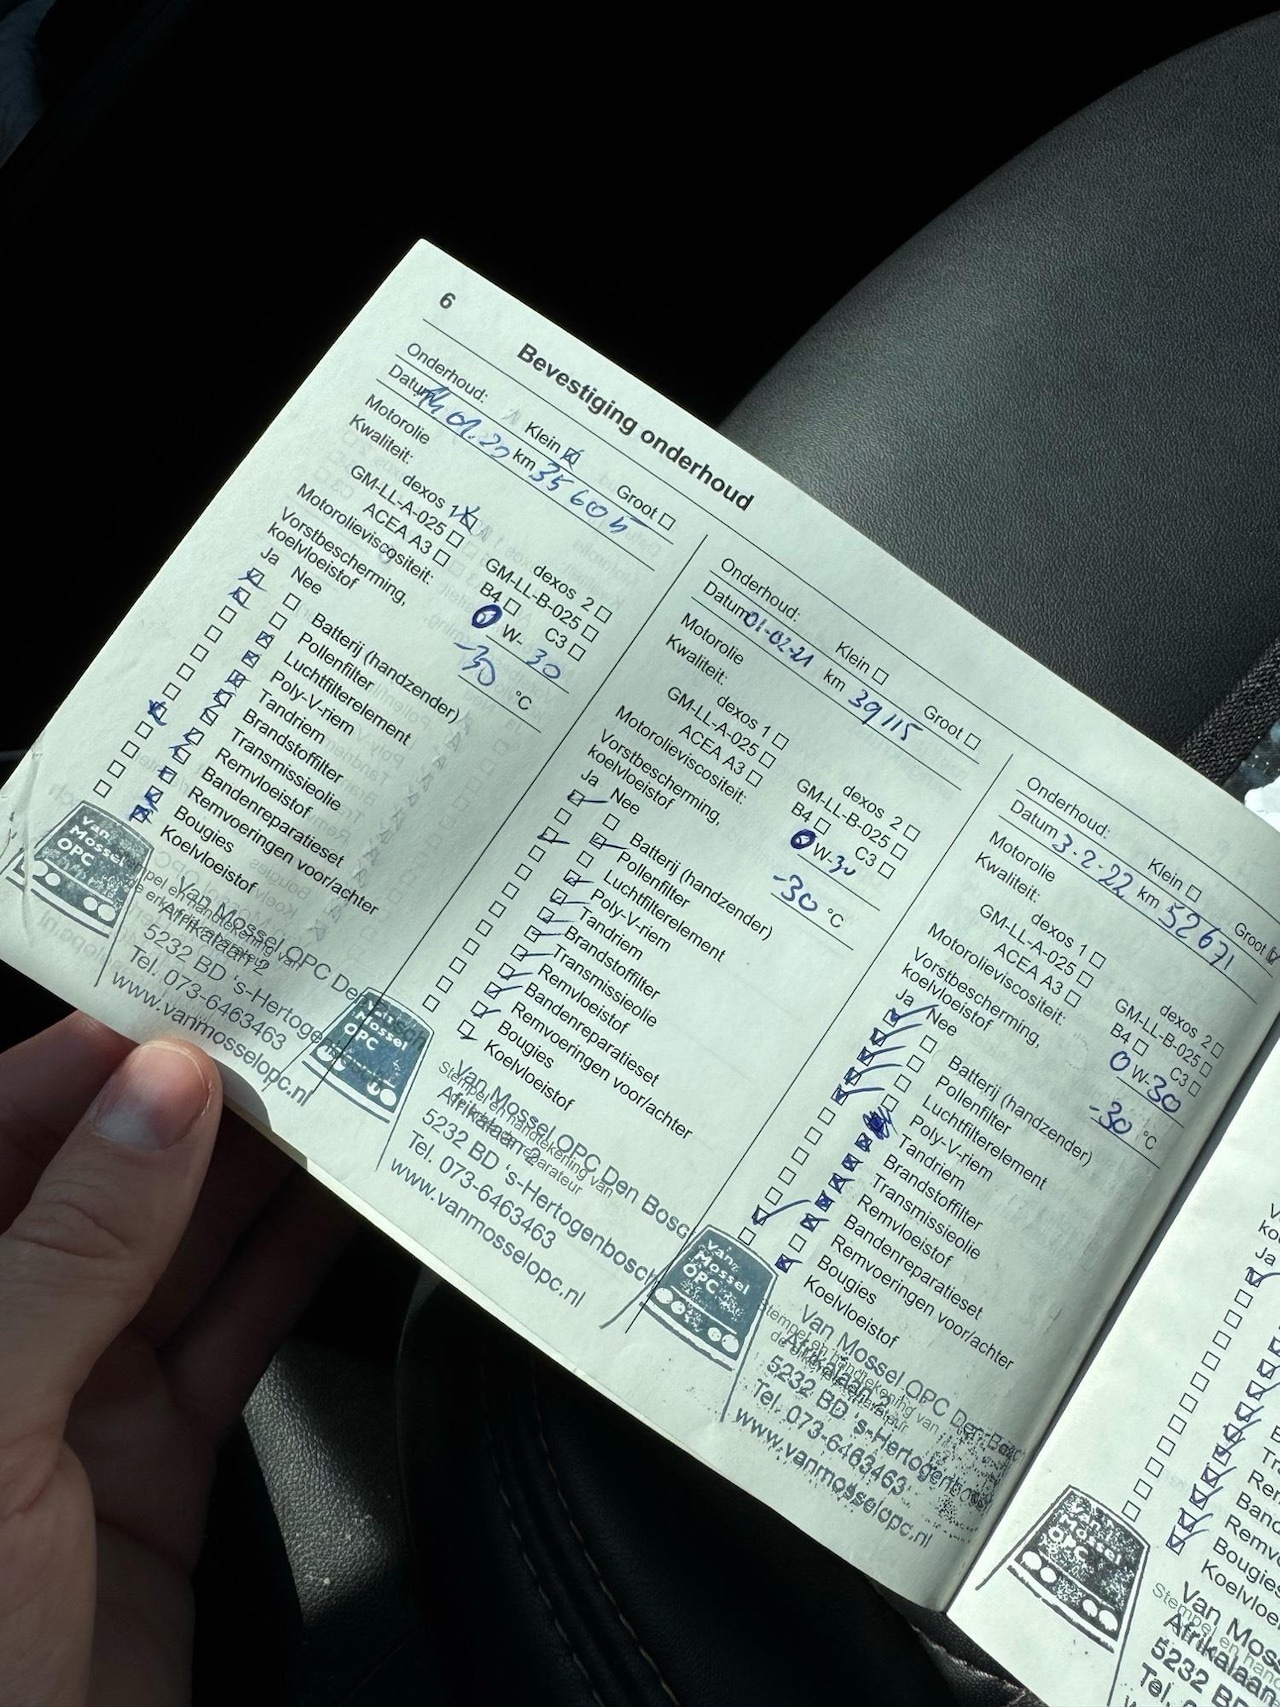 6
Bevestiging onderhoud
Onderhoud: Klein Groot
Datum 14.01.20 km 35605
Motorolie
Kwaliteit:
dexos 1 dexos 2
GM-LL-A-025 GM-LL-B-025
ACEA A3 B4 C3
Motorolieviscositeit: 0 W- 30
Vorstbescherming,
koelvloeistof -30 °C
Ja Nee
Batterij (handzender)
Pollenfilter
Luchtfilterelement
Poly-V-riem
Tandriem
Brandstoffilter
Transmissieolie
Remvloeistof
Bandenreparatieset
Remvoeringen voor/achter
Bougies
Koelvloeistof
van Mossel OPC
Van Mossel OPC De
Afrikalaan 2
5232 BD 's-Hertoge
Tel. 073-6463463
www.vanmosselopc.nl
Onderhoud: Klein Groot
Datum 01-02-21 km 39115
Motorolie
Kwaliteit:
dexos 1 dexos 2
GM-LL-A-025 GM-LL-B-025
ACEA A3 B4 C3
Motorolieviscositeit: 0 W-30
Vorstbescherming,
koelvloeistof -30 °C
Ja Nee
Batterij (handzender)
Pollenfilter
Luchtfilterelement
Poly-V-riem
Tandriem
Brandstoffilter
Transmissieolie
Remvloeistof
Bandenreparatieset
Remvoeringen voor/achter
Bougies
Koelvloeistof
van Mossel OPC
Stempel en handtekening van
de erkende reparateur
Van Mossel OPC Den Bosc
Afrikalaan 2
5232 BD 's-Hertogenbosch
Tel. 073-6463463
www.vanmosselopc.nl
Onderhoud: Klein Groot
Datum 3.2.22 km 52671
Motorolie
Kwaliteit:
dexos 1 dexos 2
GM-LL-A-025 GM-LL-B-025
ACEA A3 B4 C3
Motorolieviscositeit: 0 W-30
Vorstbescherming,
koelvloeistof -30 °C
Ja Nee
Batterij (handzender)
Pollenfilter
Luchtfilterelement
Poly-V-riem
Tandriem
Brandstoffilter
Transmissieolie
Remvloeistof
Bandenreparatieset
Remvoeringen voor/achter
Bougies
Koelvloeistof
van Mossel OPC
Stempel en handtekening van
Van Mossel OPC Den Bosc
Afrikalaan 2
5232 BD 's-Hertogenbo
Tel. 073-6463463
www.vanmosselopc.nl
V
ko
Ja
B
Tr
Ren
Band
Remvo
Bougies
Koelvloe
van Mossel OPC
Stempel en han
Van Moss
Afrikalaan
5232 B
Tel.